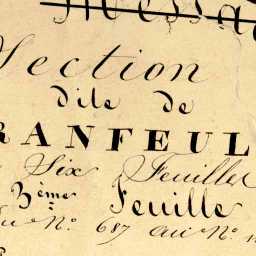 Section
dite de
RANFEUL
Six Feuilles
3ème Feuille
du N.º 687 au N.º